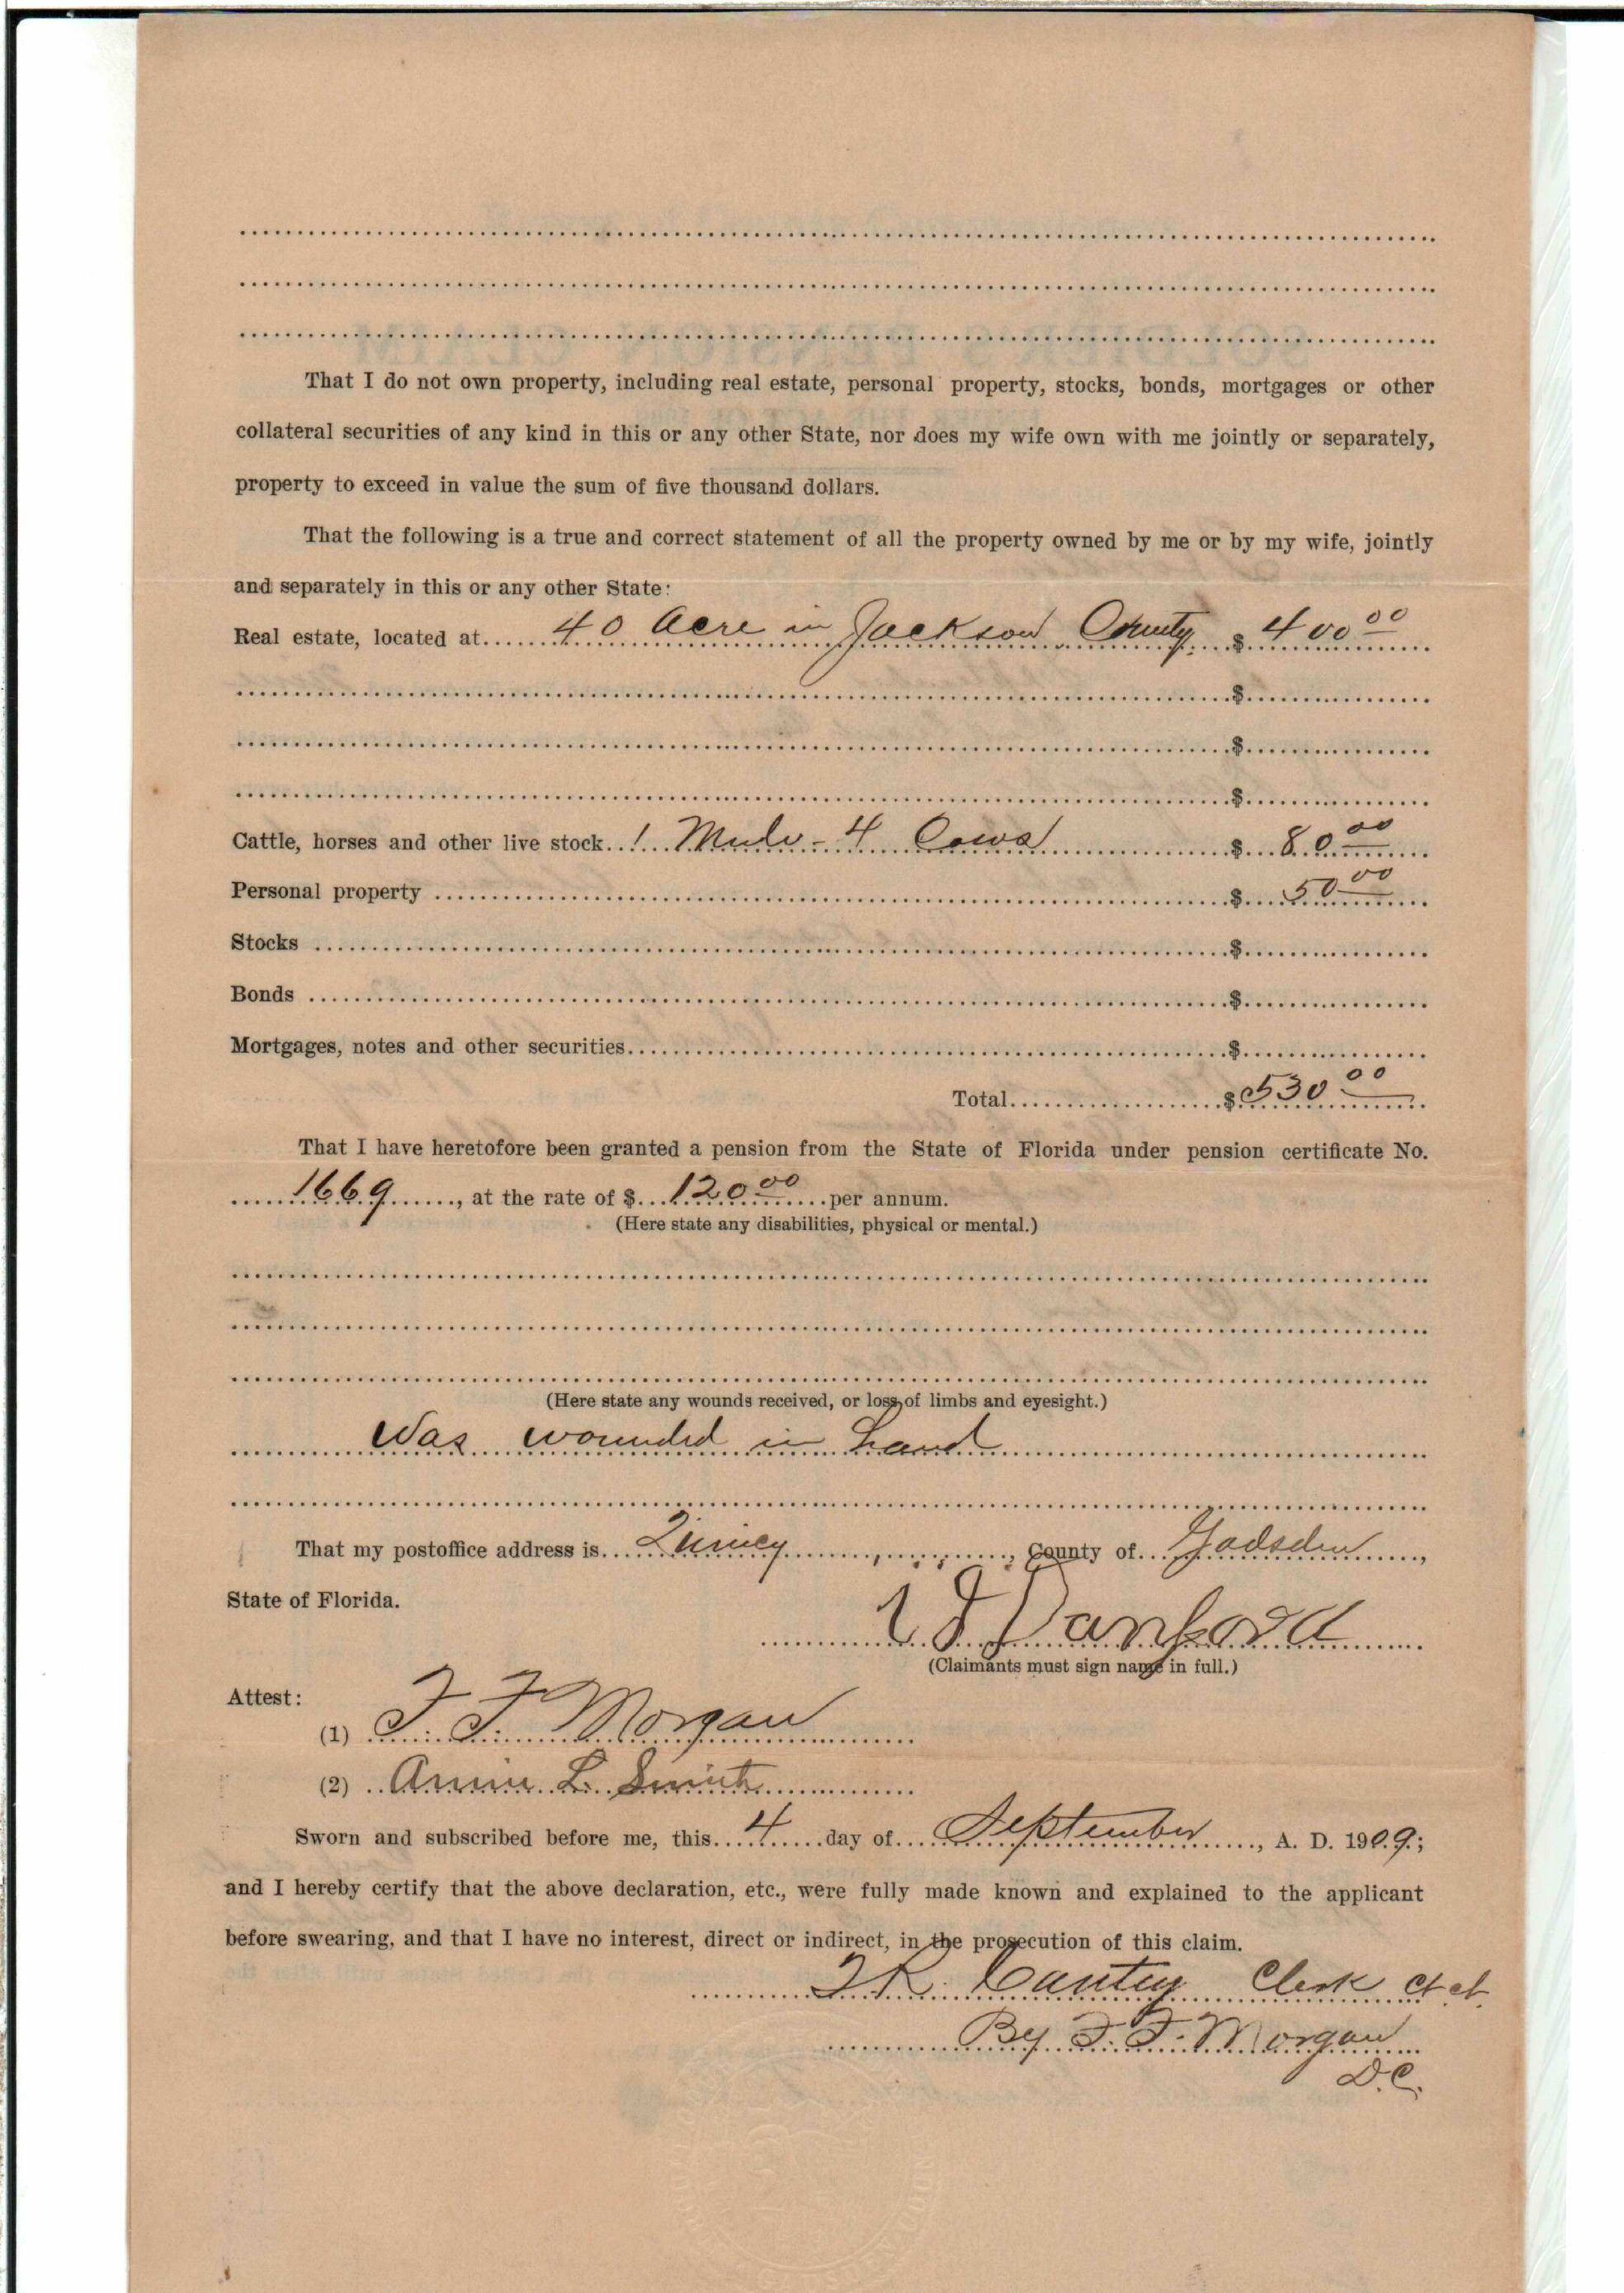 That I do not own property, including real estate, personal property, stocks, bonds, mortgages or other
collateral securities of any kind in this or any other State, nor does my wife own with me jointly or separately,
property to exceed in value the sum of five thousand dollars.
That the following is a true and correct statement of all the property owned by me or by my wife, jointly
and separately in this or any other State:
Real estate, located at 40 Acre in Jackson County. $ 400 00
$
$
$
Cattle, horses and other live stock 1 Mule - 4 Cows $ 80 00
Personal property $ 50 00
Stocks $
Bonds $
Mortgages, notes and other securities $
Total $ 530 00
That I have heretofore been granted a pension from the State of Florida under pension certificate No.
1669, at the rate of $ 120 00 per annum.
(Here state any disabilities, physical or mental.)
(Here state any wounds received, or loss of limbs and eyesight.)
Was wounded in hand
That my postoffice address is Quincy, County of Gadsden,
State of Florida.
Danford
(Claimants must sign name in full.)
Attest:
(1) F. F. Morgan
(2) Annie L. Smith
Sworn and subscribed before me, this 4 day of September, A. D. 1909;
and I hereby certify that the above declaration, etc., were fully made known and explained to the applicant
before swearing, and that I have no interest, direct or indirect, in the prosecution of this claim.
Clerk Ct ct.
By F. F. Morgan
D.C.